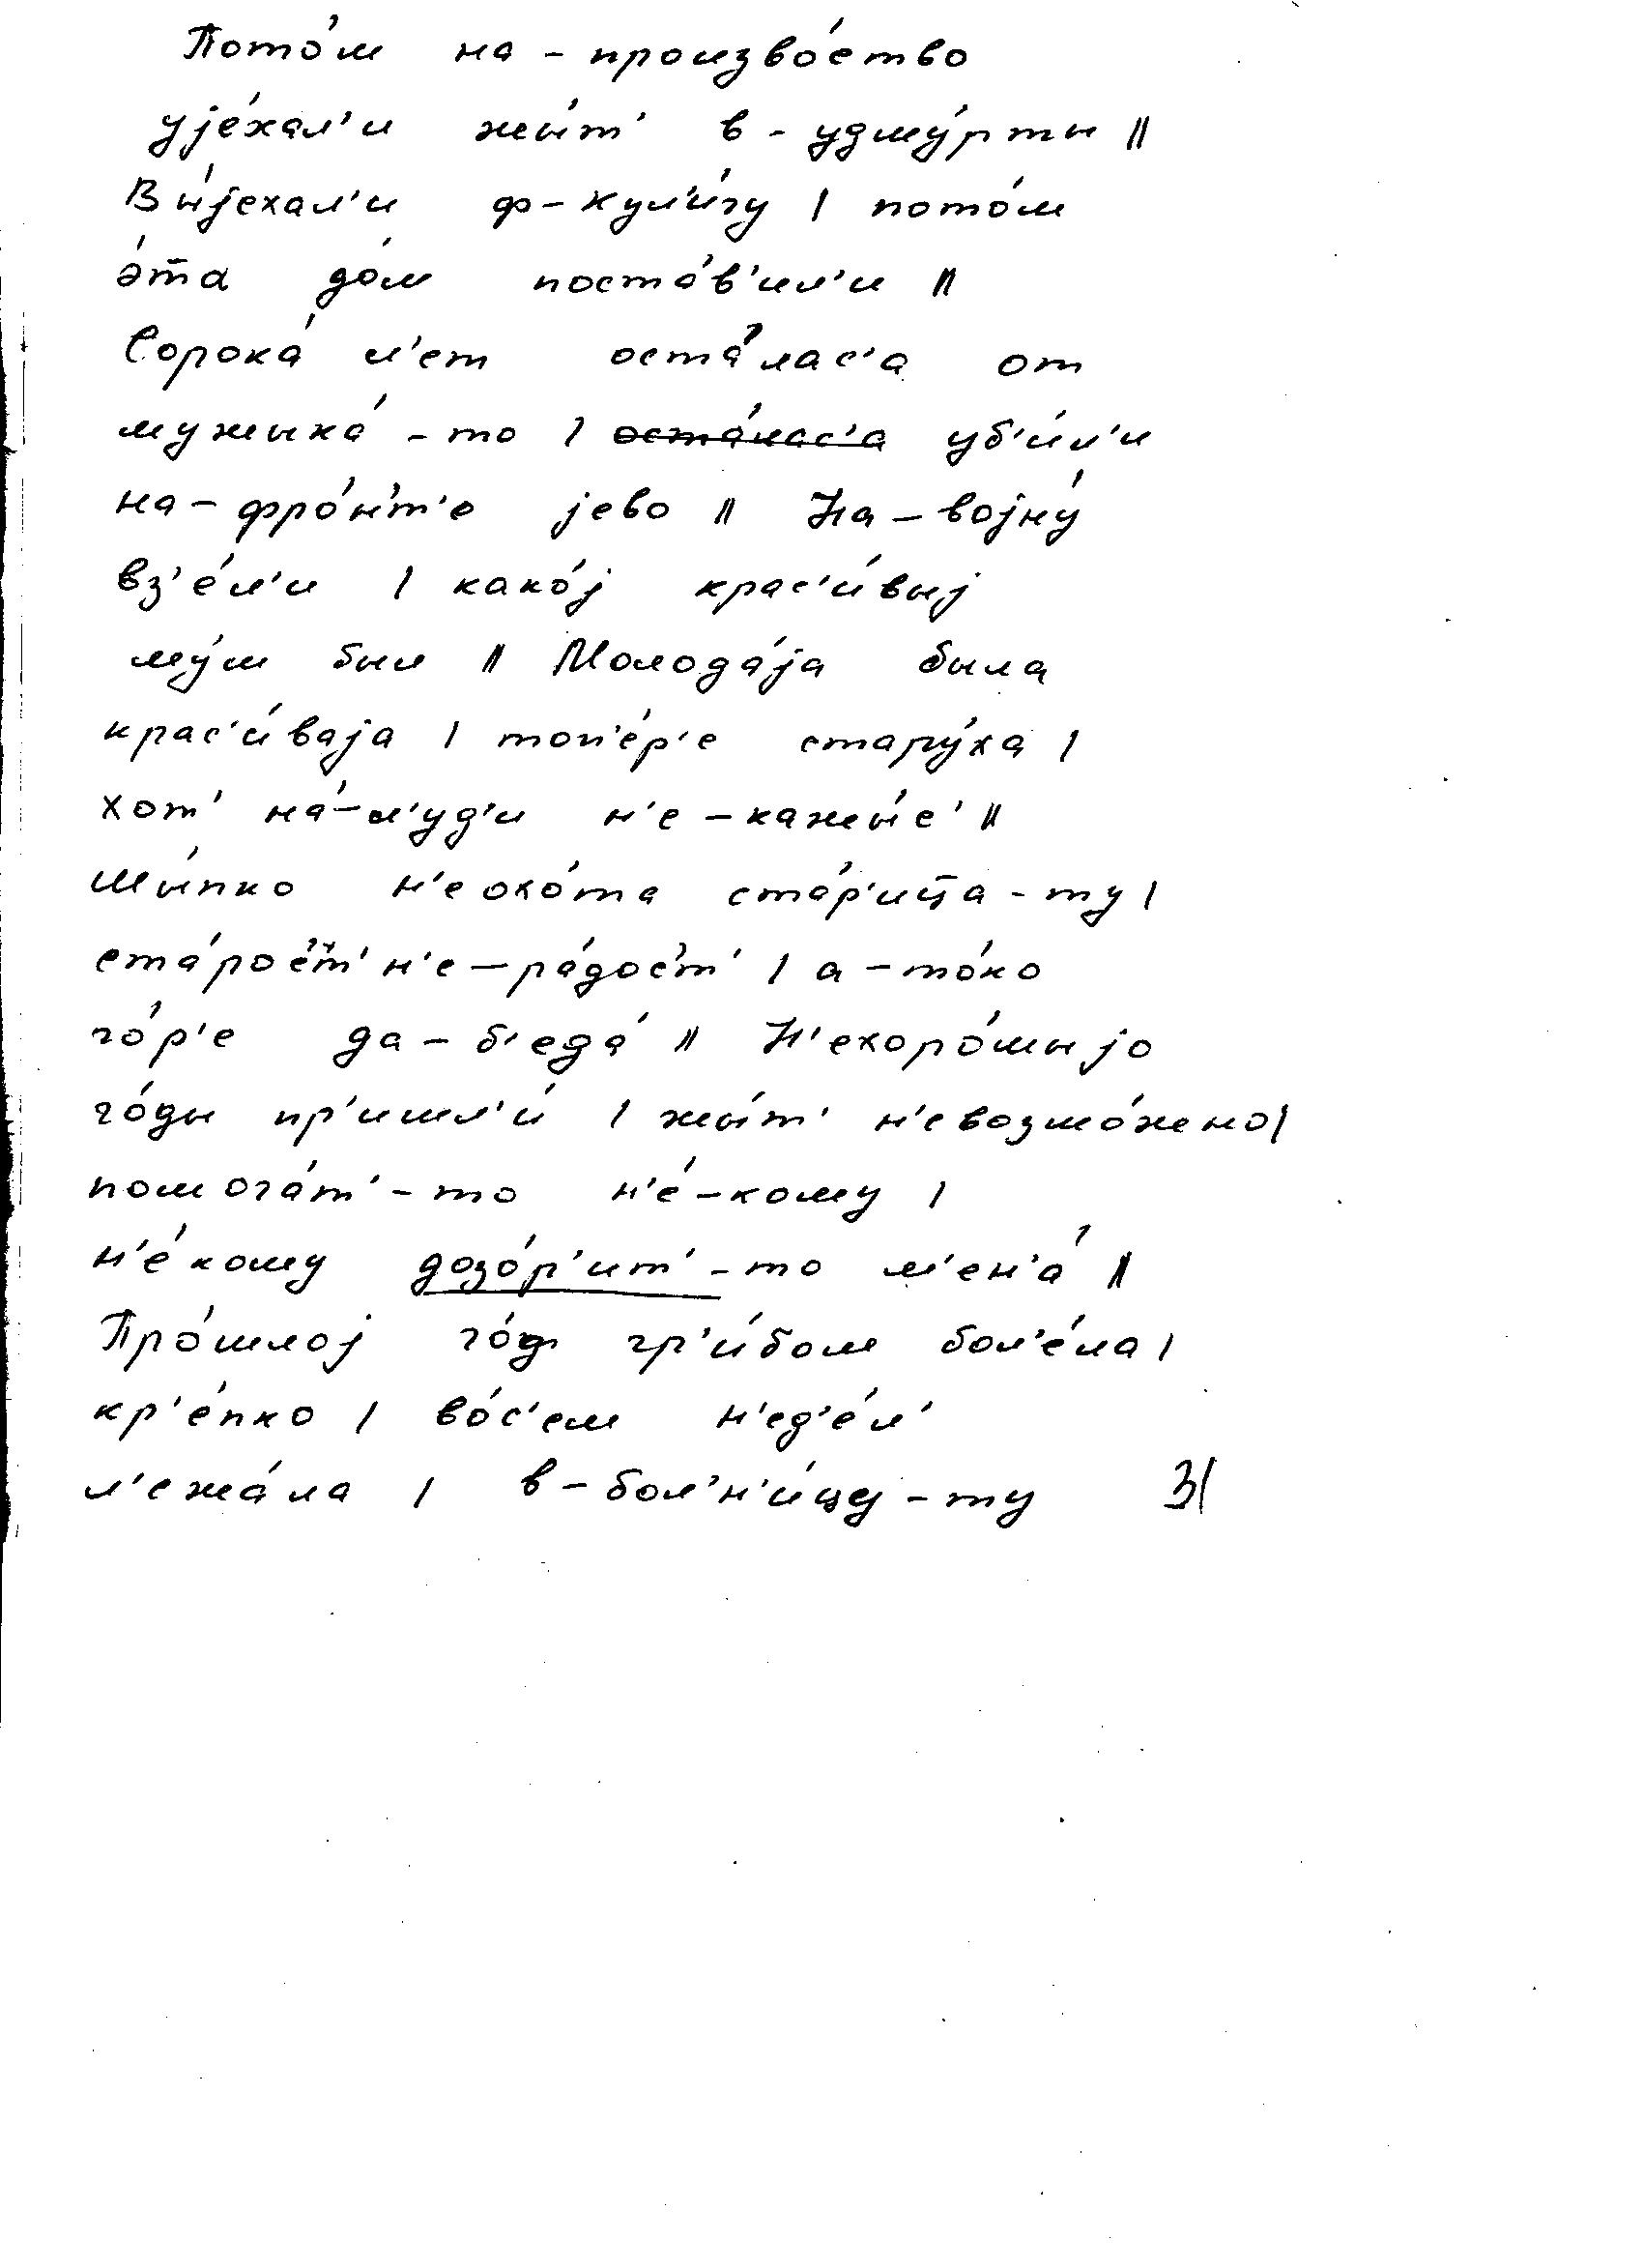 Пото́м на-произво́ство
ује́хал'и жы́т' в-удму́рты ||
Вы́јехал'и ф-кул'и́гу | пото́м
э́т̄а до́м поста́в'ил'и ||
Сорока́ л'ет оста́лас'а от
мужыка́-то | ~~оста́лас'а~~ уб'и́л'и
на-фро́н'т'е јево || На-војну́
вз'е́л'и | како́ј крас'и́выј
му́ш был || Молода́ја была
крас'и́ваја | топ'е́р'е стару́ха |
хот' на́-л'уд'и н'е-кажы́с' ||
Шы́пко н'еохо́та ста́р'иц̄а-ту |
ста́рос'т' н'е-ра́дос'т' | а-то́ко
го́р'е да-б'еда́ || Н'ехоро́шыјо
го́ды пр'ишл'и́ | жы́т' н'евозмо́жено |
помога́т'-то н'е́-кому |
н'е́кому дозо́р'ит'-то м'ен'а́ ||
Про́шлој го́д гр'и́бом бол'е́ла |
кр'е́пко | во́с'ем н'ед'е́л'
л'ежа́ла | в-бол'н'и́цу-ту 31